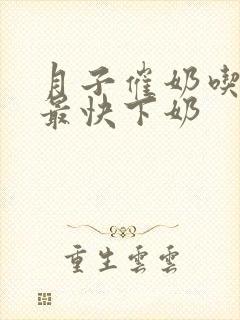 月子催奶喫
最快下奶
重生雲雲